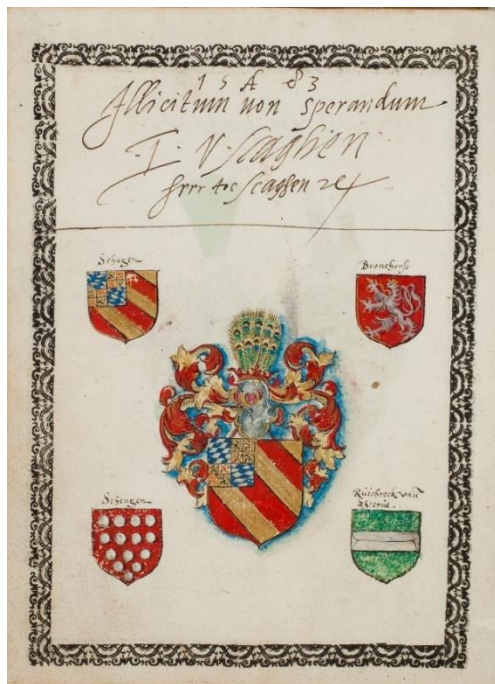 15 A 83
Illicitum non sperandum
J. V. Scaghen
herr tot Scagen
Schagen
Bronchorst
Schengen
Ruichrock van